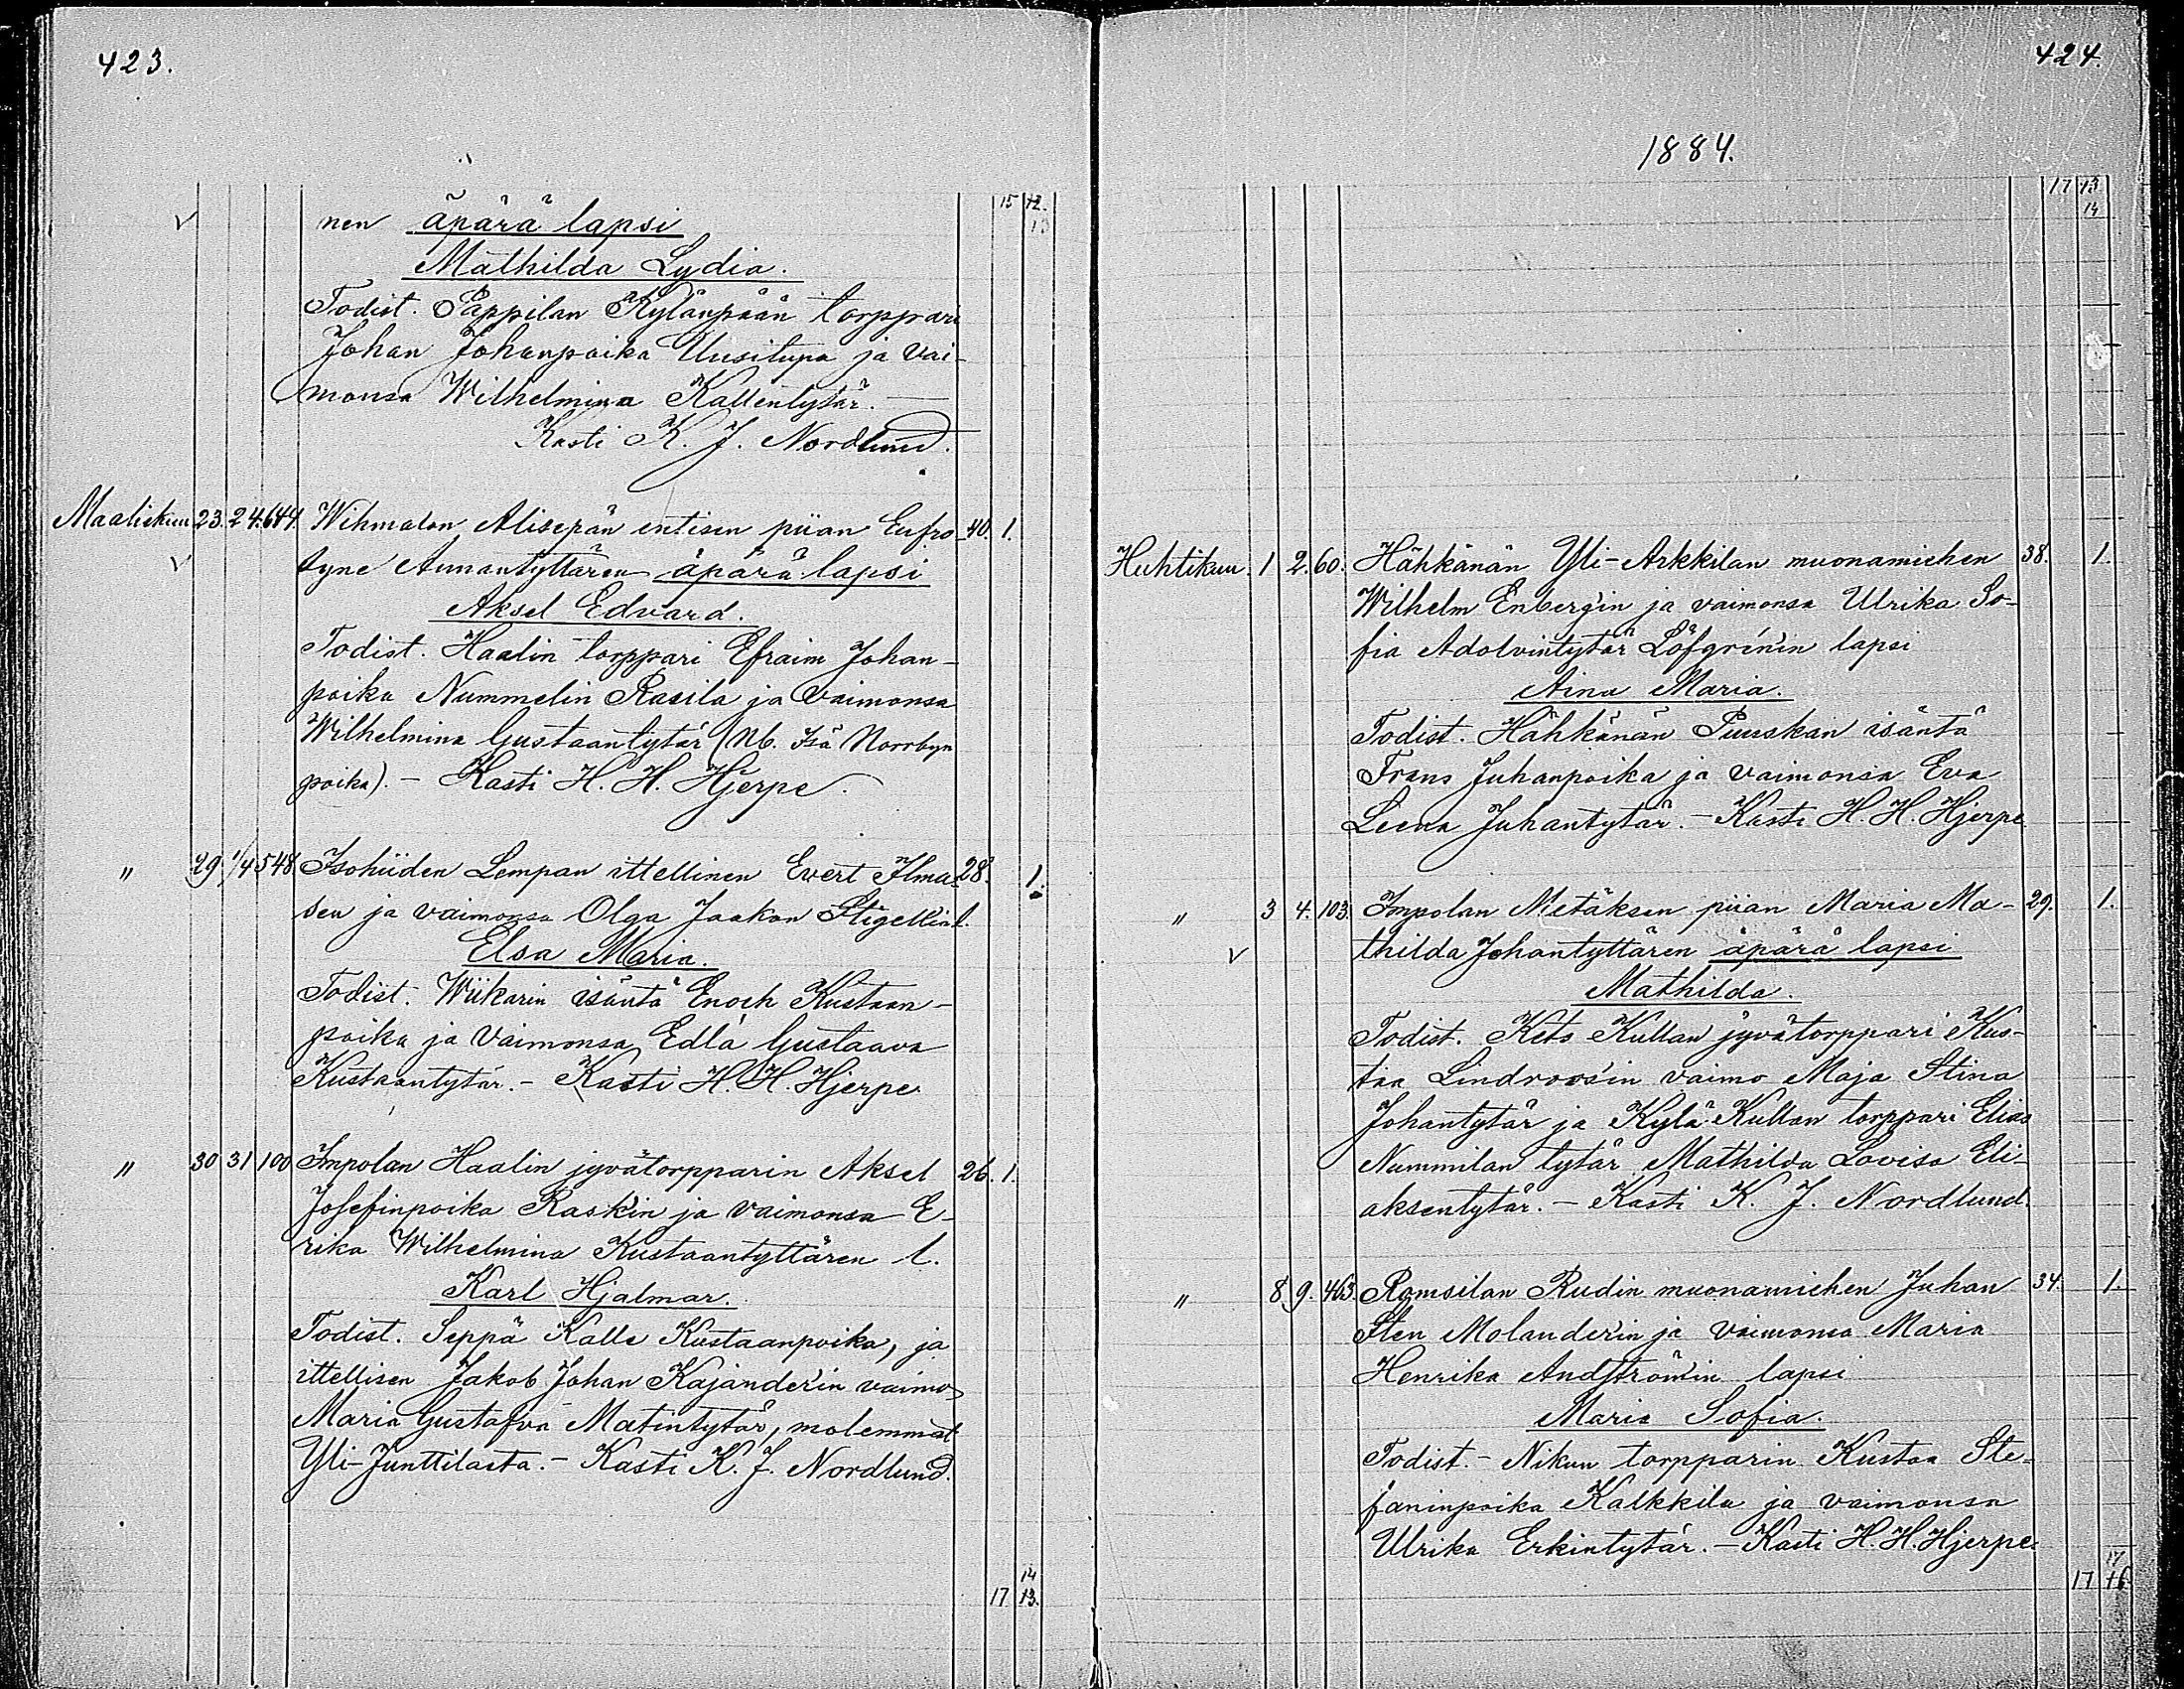 423.
15 12.
13
nen äpärä lapsi
Mathilda Lydia.
Todist. Pappilan Kylänpään torppari
Johan Johanpoika Uusitupa ja vai-
monsa Wilhelmina Kallentytär. —
Kasti K. J. Nordlund.
Maaliskuu 23. 24. 644. Wihmalan Alisepän entisen piian Eufro- 40. 1.
syne Annantyttären äpärä lapsi
Aksel Edvard.
Todist. Haalin torppari Efraim Johan-
poika Nummelin Rasila ja vaimonsa
Wilhelmina Gustaantytär (Nb. Isä Norrbyn
poika). — Kasti H. H. Hjerpe.
" 29 1/4 548 Isohiiden Lempan ittellinen Evert Ilma- 28. 1.
sen ja vaimonsa Olga Jaakon Stigellin l.
Elsa Maria.
Todist. Wiikarin isäntä Enoch Kustaan-
poika ja vaimonsa Edla Gustaava
Kustaantytär. — Kasti H. H. Hjerpe.
" 30 31 100 Impolan Haalin jyvätorpparin Aksel 26. 1.
Josefinpoika Raskin ja vaimonsa E-
rika Wilhelmina Kustaantyttären l.
Karl Hjalmar.
Todist. Seppä Kalle Kustaanpoika, ja
ittellisen Jakob Johan Kajander'in vaimo
Maria Gustafva Matintytär, molemmat
Yli-Junttilasta. — Kasti K. J. Nordlund.
14
17 13.
424.
1884.
17 13
14
Huhtikuu. 1 2. 60. Hähkänän Yli-Arkkilan muonamiehen 38. 1.
Wilhelm Enberg'in ja vaimonsa Ulrika So-
fia Adolvintytär Löfgrén'in lapsi
Aina Maria.
Todist. Hähkänän Puuskan isäntä
Frans Juhanpoika ja vaimonsa Eva
Leena Juhantytär. — Kasti H. H. Hjerpe
" 3 4. 103. Impolan Metäksen piian Maria Ma- 29. 1.
thilda Johantyttären äpärä lapsi
Mathilda.
Todist. Keto Kullan jyvätorppari Kus-
taa Lindroos'in vaimo Maja Stina
Johantytär ja Kylä Kullan torppari Elias
Nummilan tytär Mathilda Lovisa Eli-
aksentytär. — Kasti K. J. Nordlund.
" 8 9. 463. Romsilan Rudin muonamiehen Juhan 34. 1.
Sten Molander'in ja vaimonsa Maria
Henrika Andström'in lapsi
Maria Sofia.
Todist. — Nikun torpparin Kustaa Ste-
faninpoika Kalkkila ja vaimonsa
Ulrika Erkintytär. — Kasti H. H. Hjerpe.
17
17 16